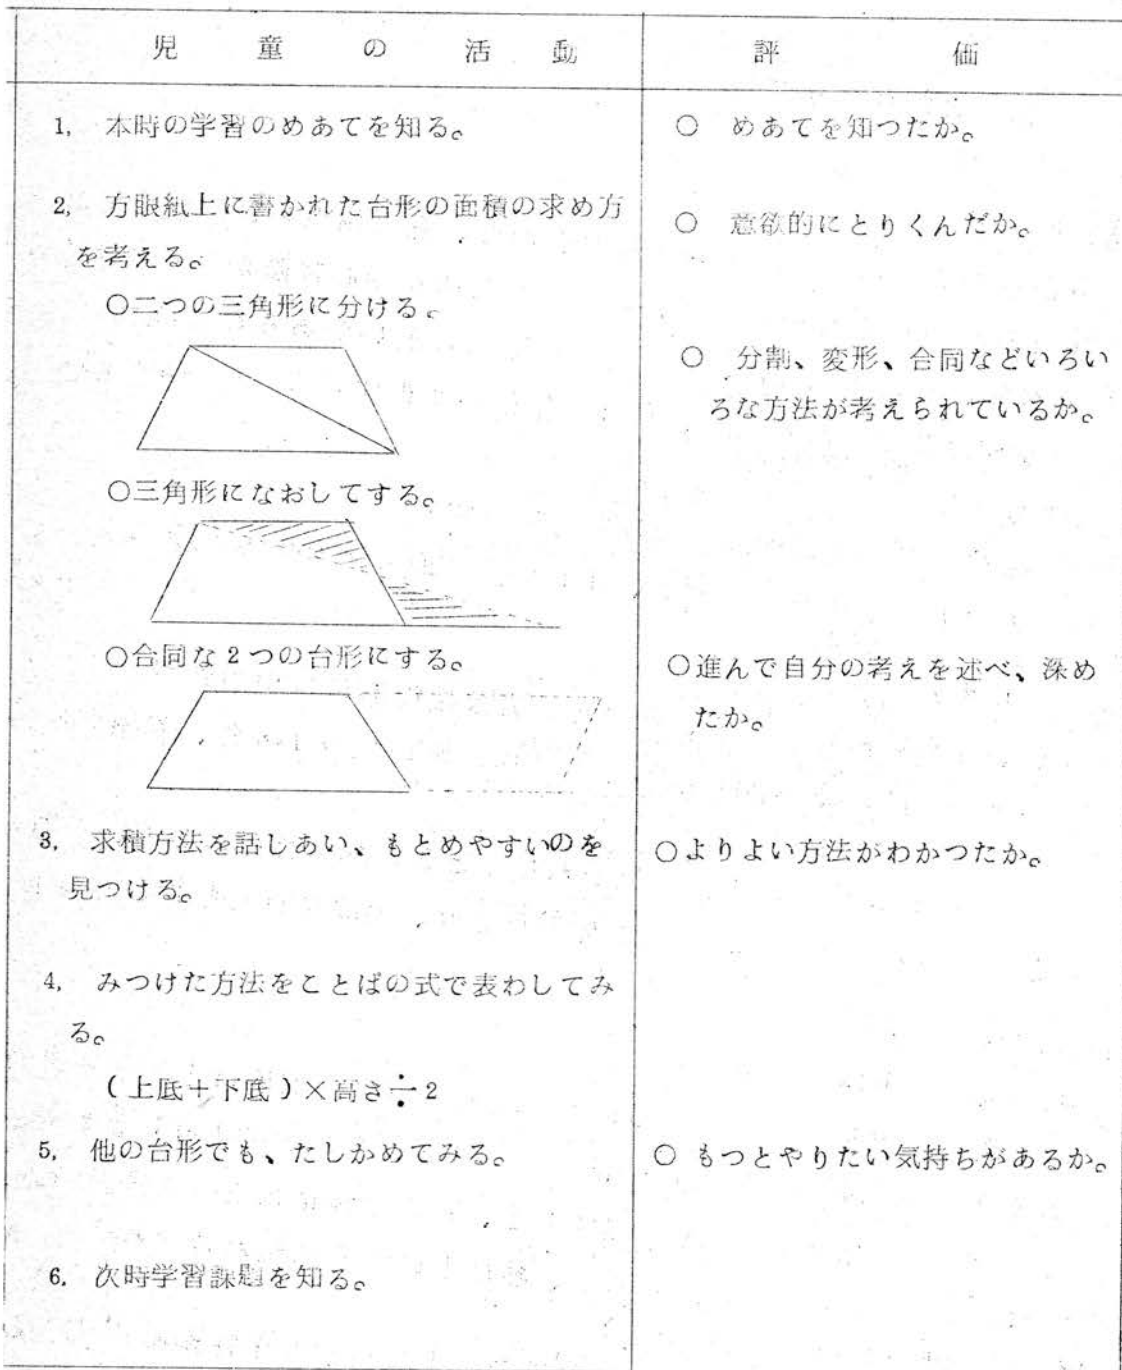 児童の活動
評価
1. 本時の学習のめあてを知る。
○ めあてを知つたか。
2. 方眼紙上に書かれた台形の面積の求め方
を考える。
○ 意欲的にとりくんだか。
○二つの三角形に分ける。
○ 分割、変形、合同などいろい
ろな方法が考えられているか。
○三角形になおしてする。
○合同な2つの台形にする。
○進んで自分の考えを述べ、深め
たか。
3. 求積方法を話しあい、もとめやすいのを
見つける。
○よりよい方法がわかつたか。
4. みつけた方法をことばの式で表わしてみ
る。
(上底+下底)×高さ÷2
5. 他の台形でも、たしかめてみる。
○ もつとやりたい気持ちがあるか。
6. 次時学習課題を知る。